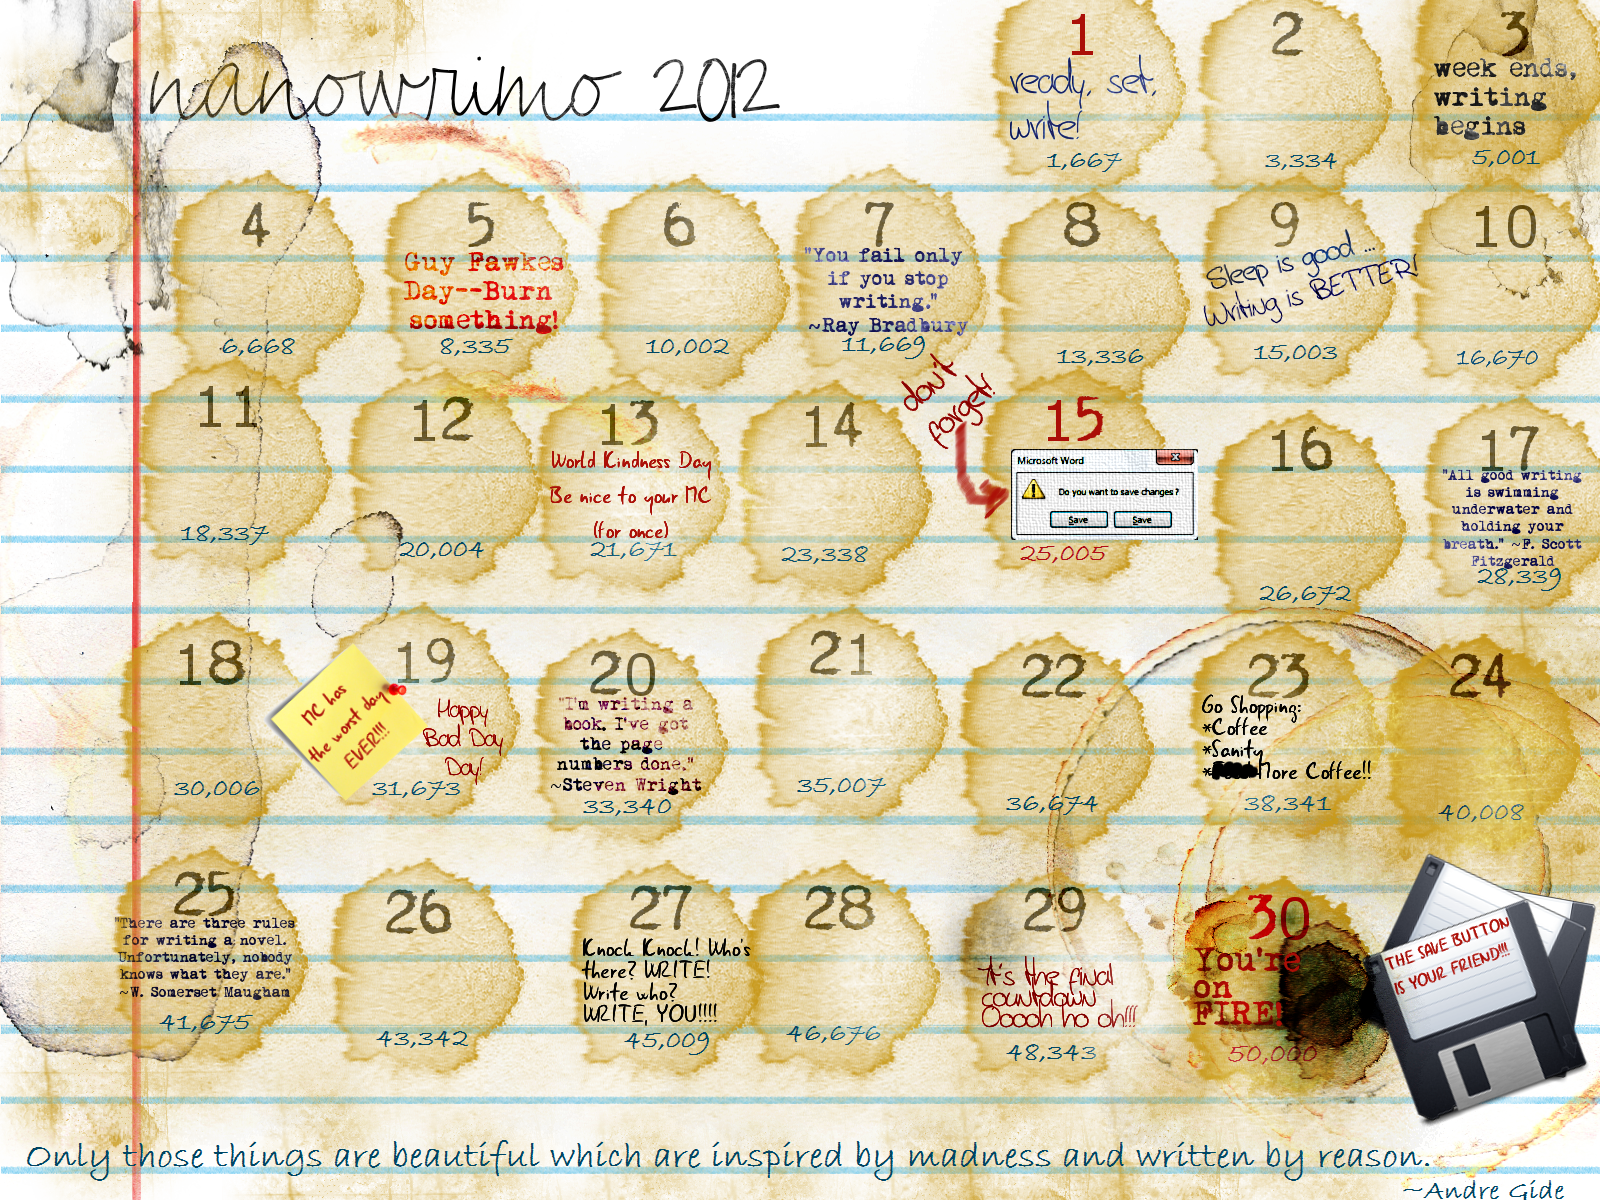 nanowrimo 2012
1
ready, set,
write!
1,667
2
3,334
3
week ends,
writing
begins
5,001
4
6,668
5
Guy Fawkes
Day--Burn
something!
8,335
6
10,002
7
"You fail only
if you stop
writing."
~Ray Bradbury
11,669
8
13,336
9
Sleep is good ...
Writing is BETTER!
15,003
10
16,670
11
18,337
12
20,004
13
World Kindness Day
Be nice to your MC
(for once)
21,671
14
23,338
don't
forget!
15
Microsoft Word
Do you want to save changes?
Save Save
25,005
16
26,672
17
"All good writing
is swimming
underwater and
holding your
breath." ~F. Scott
Fitzgerald
28,339
18
30,006
MC has
the worst day
EVER!!!
19
Happy
Bad Day
Day!
31,673
20
"I'm writing a
book. I've got
the page
numbers done."
~Steven Wright
33,340
21
35,007
22
36,674
23
Go Shopping:
*Coffee
*Sanity
* More Coffee!!
38,341
24
40,008
25
"There are three rules
for writing a novel.
Unfortunately, nobody
knows what they are."
~W. Somerset Maugham
41,675
26
43,342
27
Knock Knock! Who's
there? WRITE!
Write who?
WRITE, YOU!!!!
45,009
28
46,676
29
It's the final
countdown
Ooooh ho oh!!!
48,343
30
You're
on
FIRE!
50,000
THE SAVE BUTTON
IS YOUR FRIEND!!!
Only those things are beautiful which are inspired by madness and written by reason.
~Andre Gide